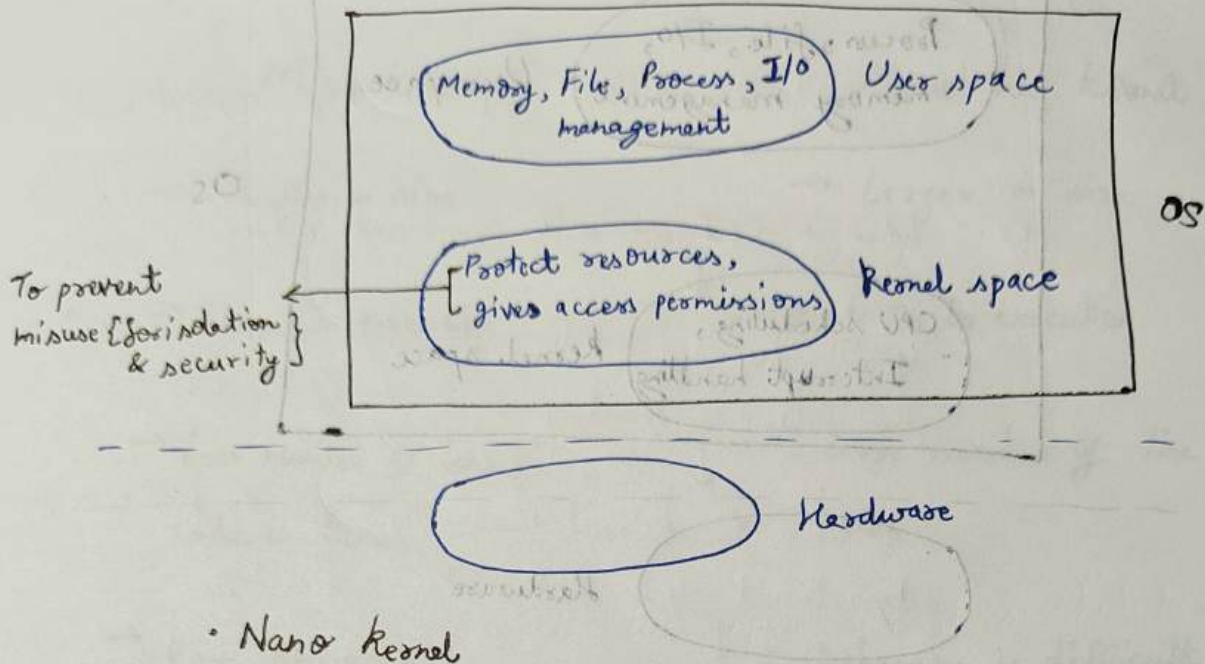 Memory, File, Process, I/O
management
User space
OS
Protect resources,
gives access permissions
Kernel space
To prevent
misuse {for isolation
& security}
Hardware
• Nano Kernel